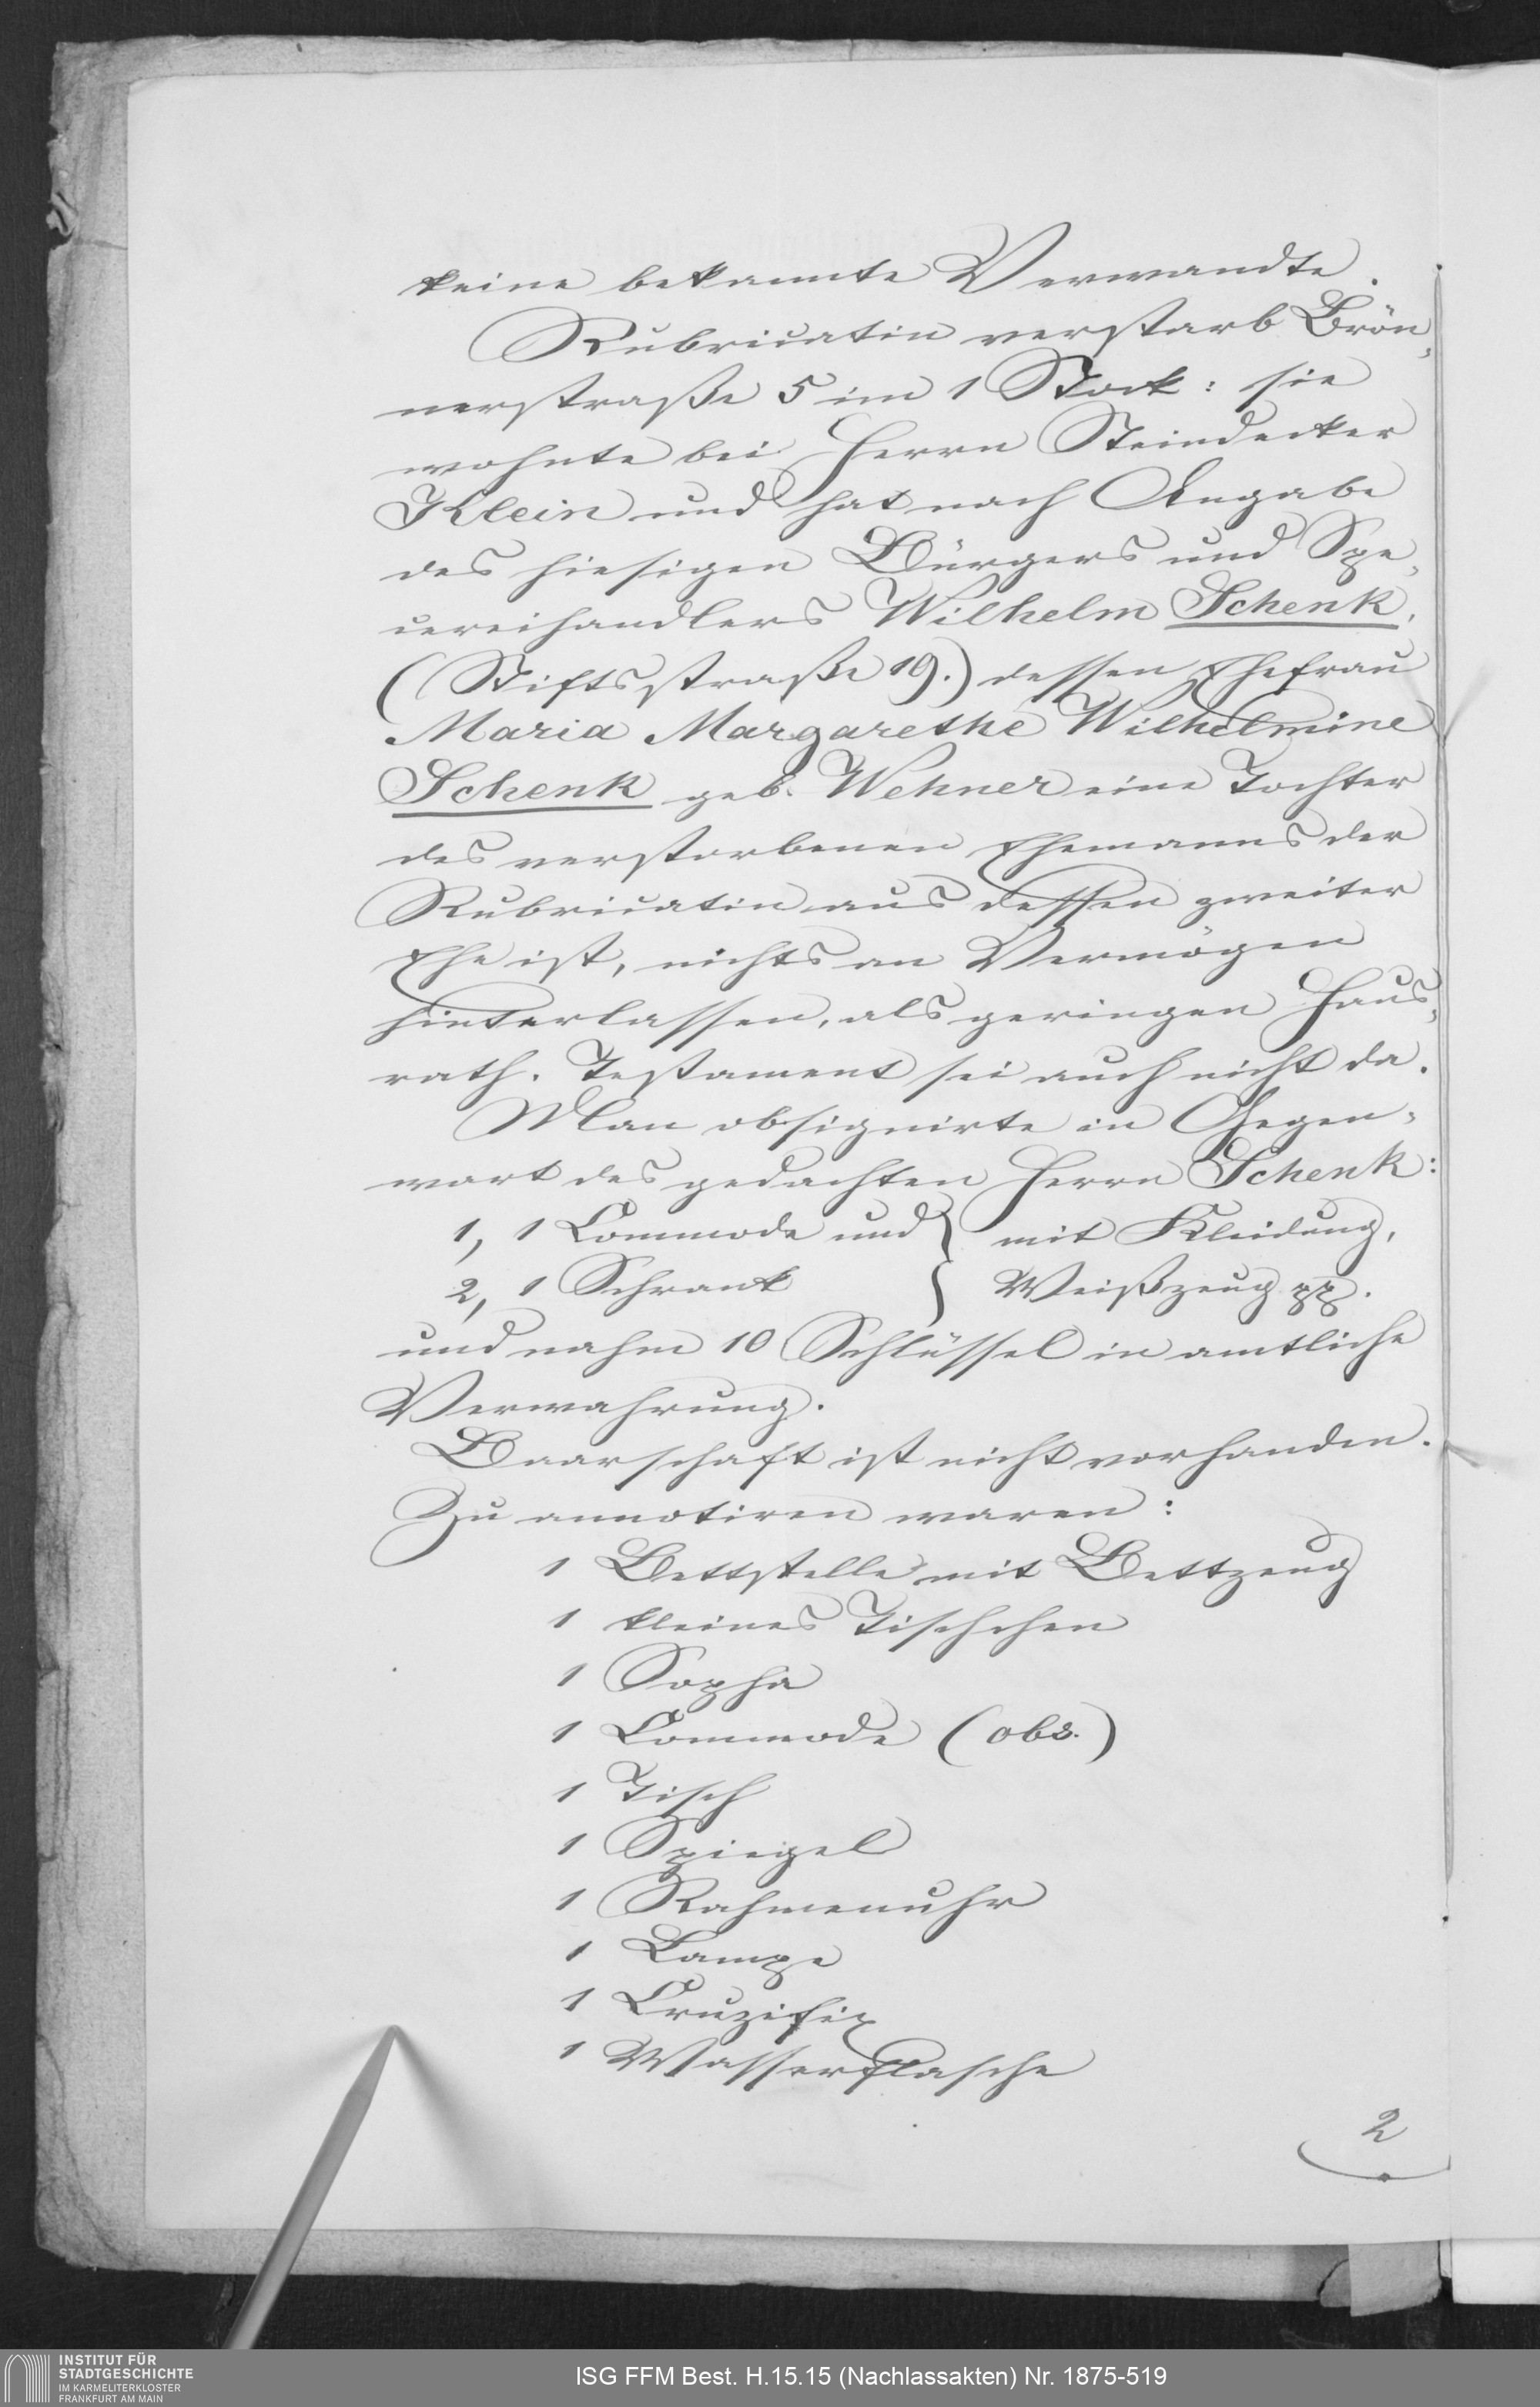 keine bekannte Verwandte.
Rubricatin verstarb Brön„
nerstraße 5 im 1 Stock: sie
wohnte bei Herrn Steindecker
Klein und hat nach Angabe
des hiesigen Bürgers und Spe„
cereihandlers Wilhelm Schenk,
(Stiftsstraße 19.) dessen Ehefrau
Maria Margarethe Wilhelmine
Schenk geb. Wehner eine Tochter
des verstorbenen Ehemanns der
Rubricatin aus dessen zweiter
Ehe ist, nichts an Vermögen
hinterlassen, als geringen Haus„
rath. Testament sei auch nicht da.
Man obsignirte in Gegen„
wart des gedachten Herrn Schenk:
1, 1 Commode und } mit Kleidung,
2, 1 Schrank } Weißzeug pp.
und nahm 10 Schlüssel in amtliche
Verwahrung.
Baarschaft ist nicht vorhanden.
Zu annotiren waren:
1 Bettstelle mit Bettzeug
1 kleines Tischchen
1 Sopha
1 Commode (obs.)
1 Tisch
1 Spiegel
1 Rahmenuhr
1 Lampe
1 Cruzifix
1 Wasserflasche
2
INSTITUT FÜR
STADTGESCHICHTE
IM KARMELITERKLOSTER
FRANKFURT AM MAIN
ISG FFM Best. H.15.15 (Nachlassakten) Nr. 1875-519